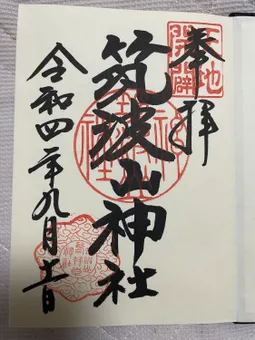 奉拝
天地開闢
筑波山神社
令和四年九月十一日